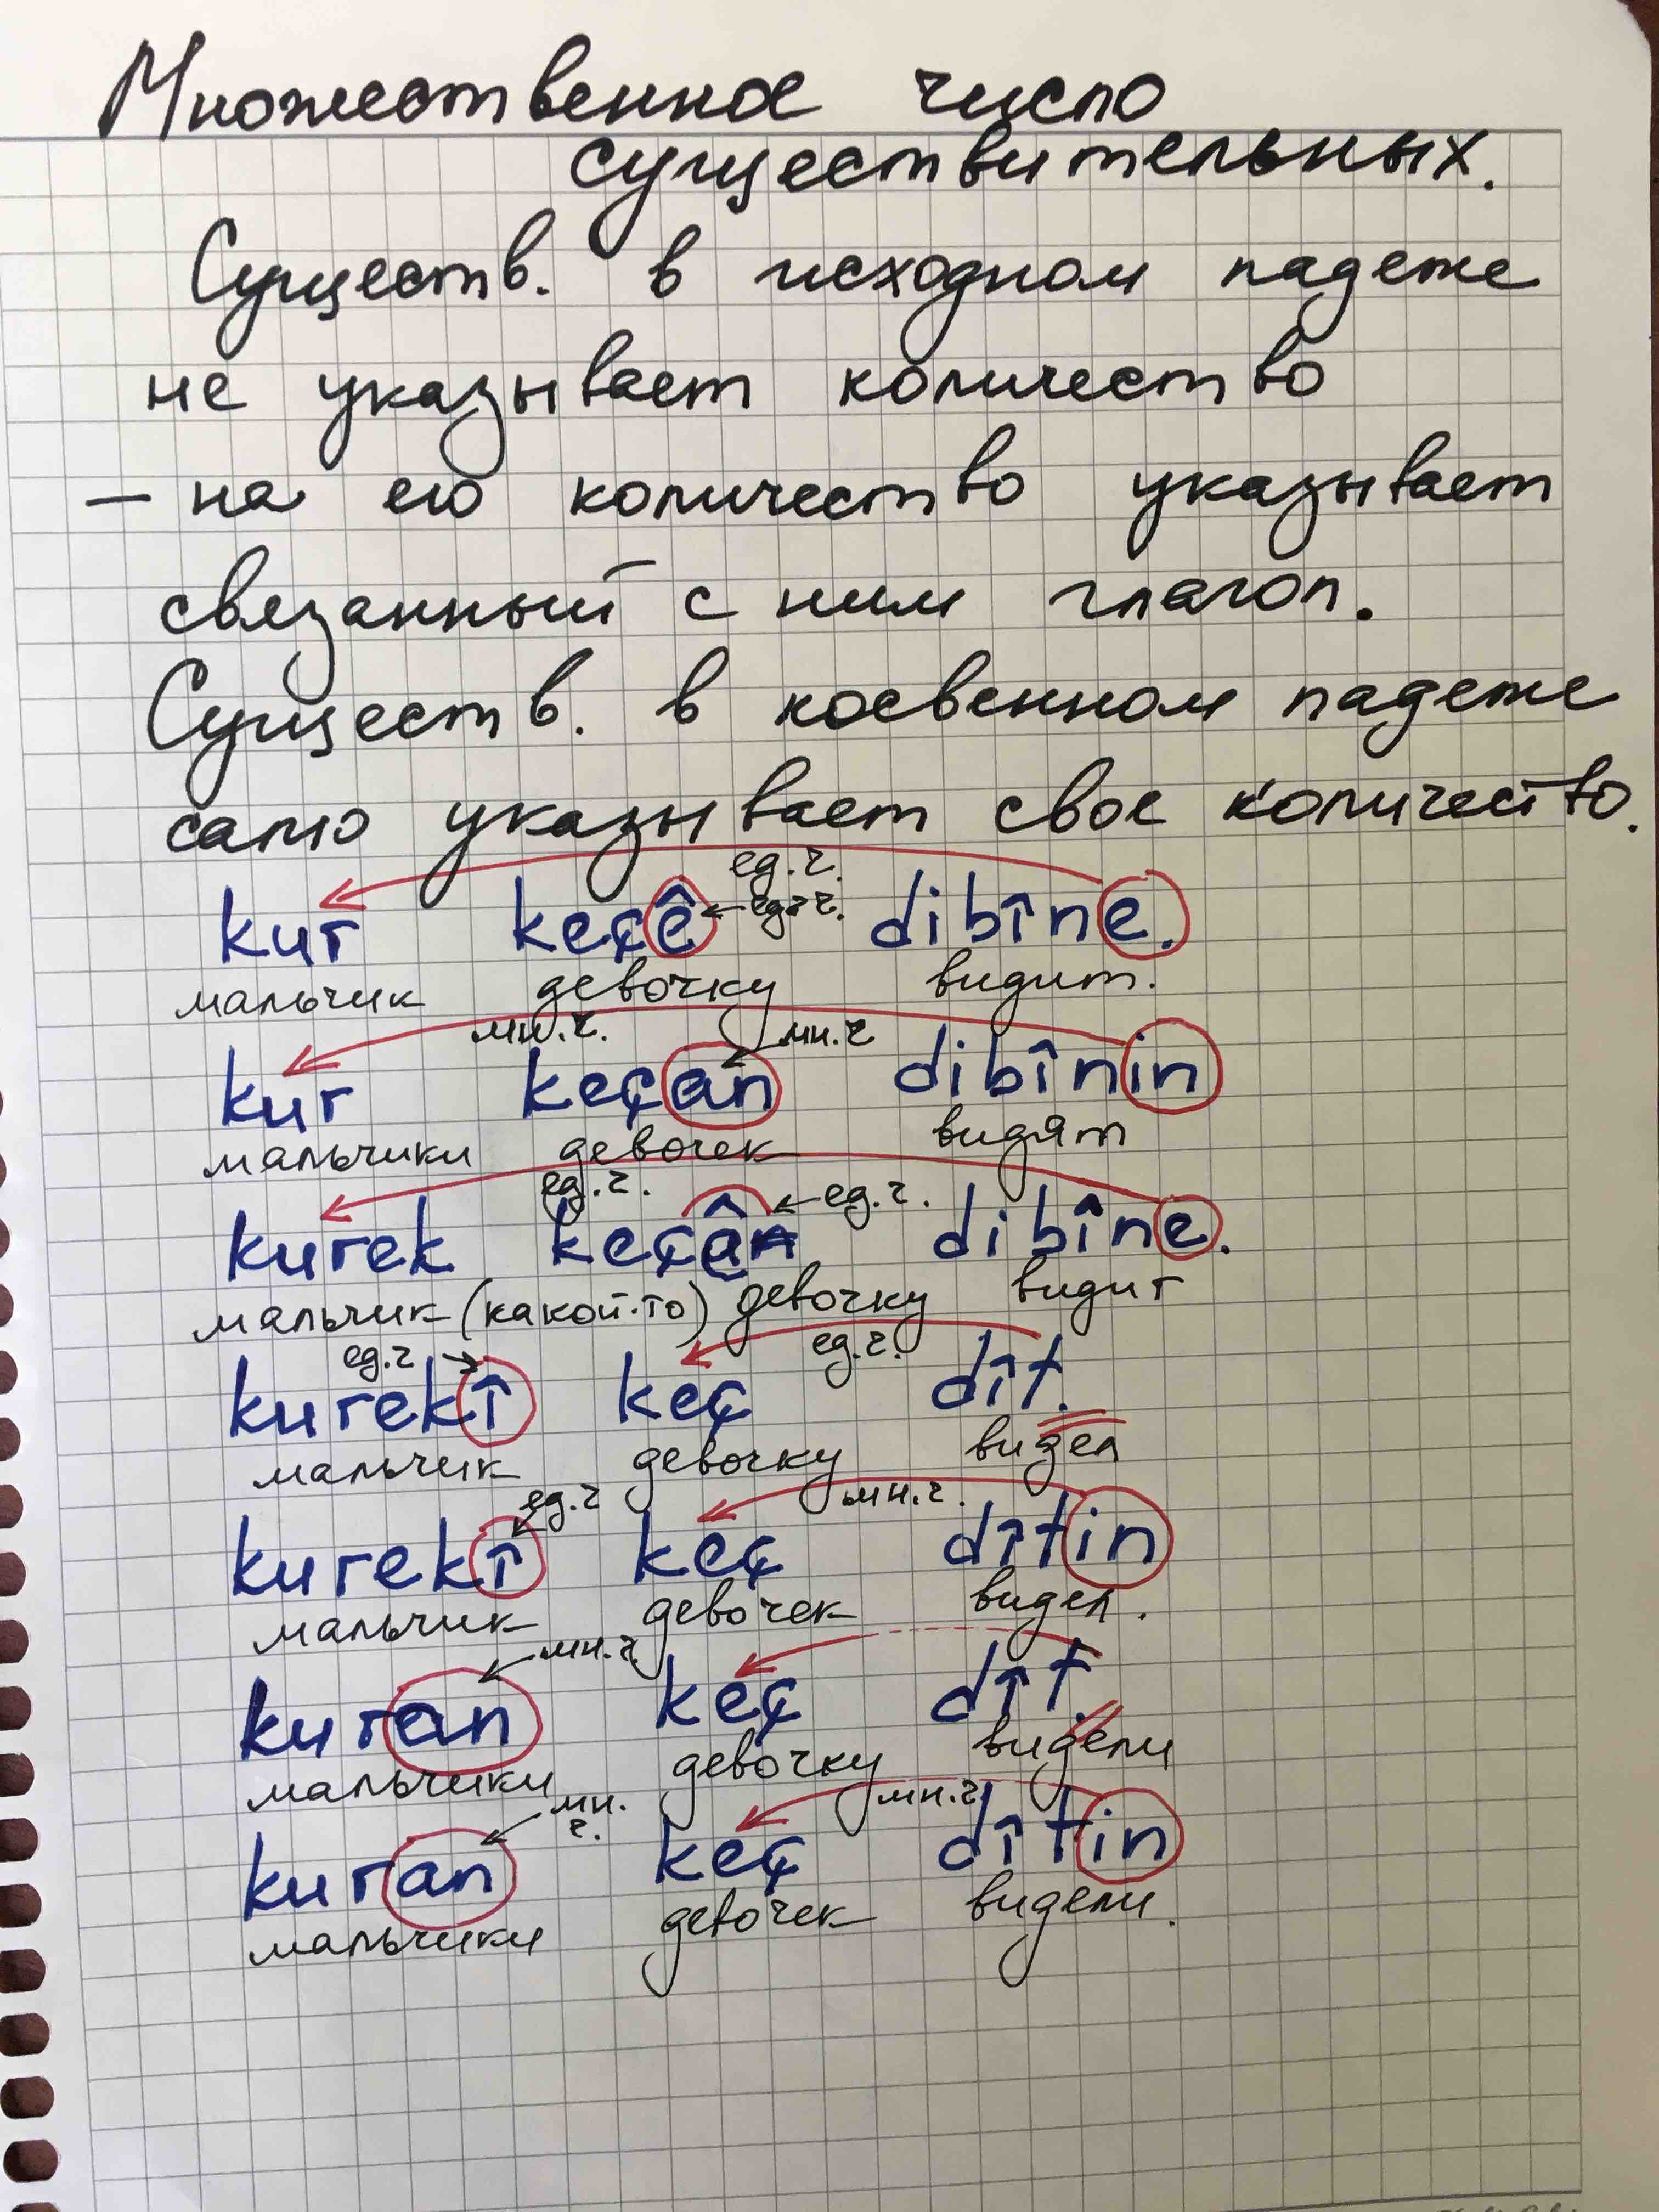 Множественное число
существительных.
Существ. в исходном падеже
не указывает количество
– на его количество указывает
связанный с ним глагол.
Существ. в косвенном падеже
само указывает свое количество.
ед.ч.
kur keçê ед.ч. dibîne.
мальчик девочку видит.
мн.ч. мн.ч
kur keçan dibînin
мальчики девочек видят
ед.ч. ед.ч.
kurek keçê dibîne.
мальчик (какой-то) девочку видит
ед.ч ед.ч.
kurekî keç dît.
мальчик девочку видел
ед.ч мн.ч.
kurekî keç dîtin
мальчик девочек видел.
мн.ч.
kuran keç dît.
мальчики девочку видели
мн.ч. мн.ч
kuran keç dîtin
мальчики девочек видели.